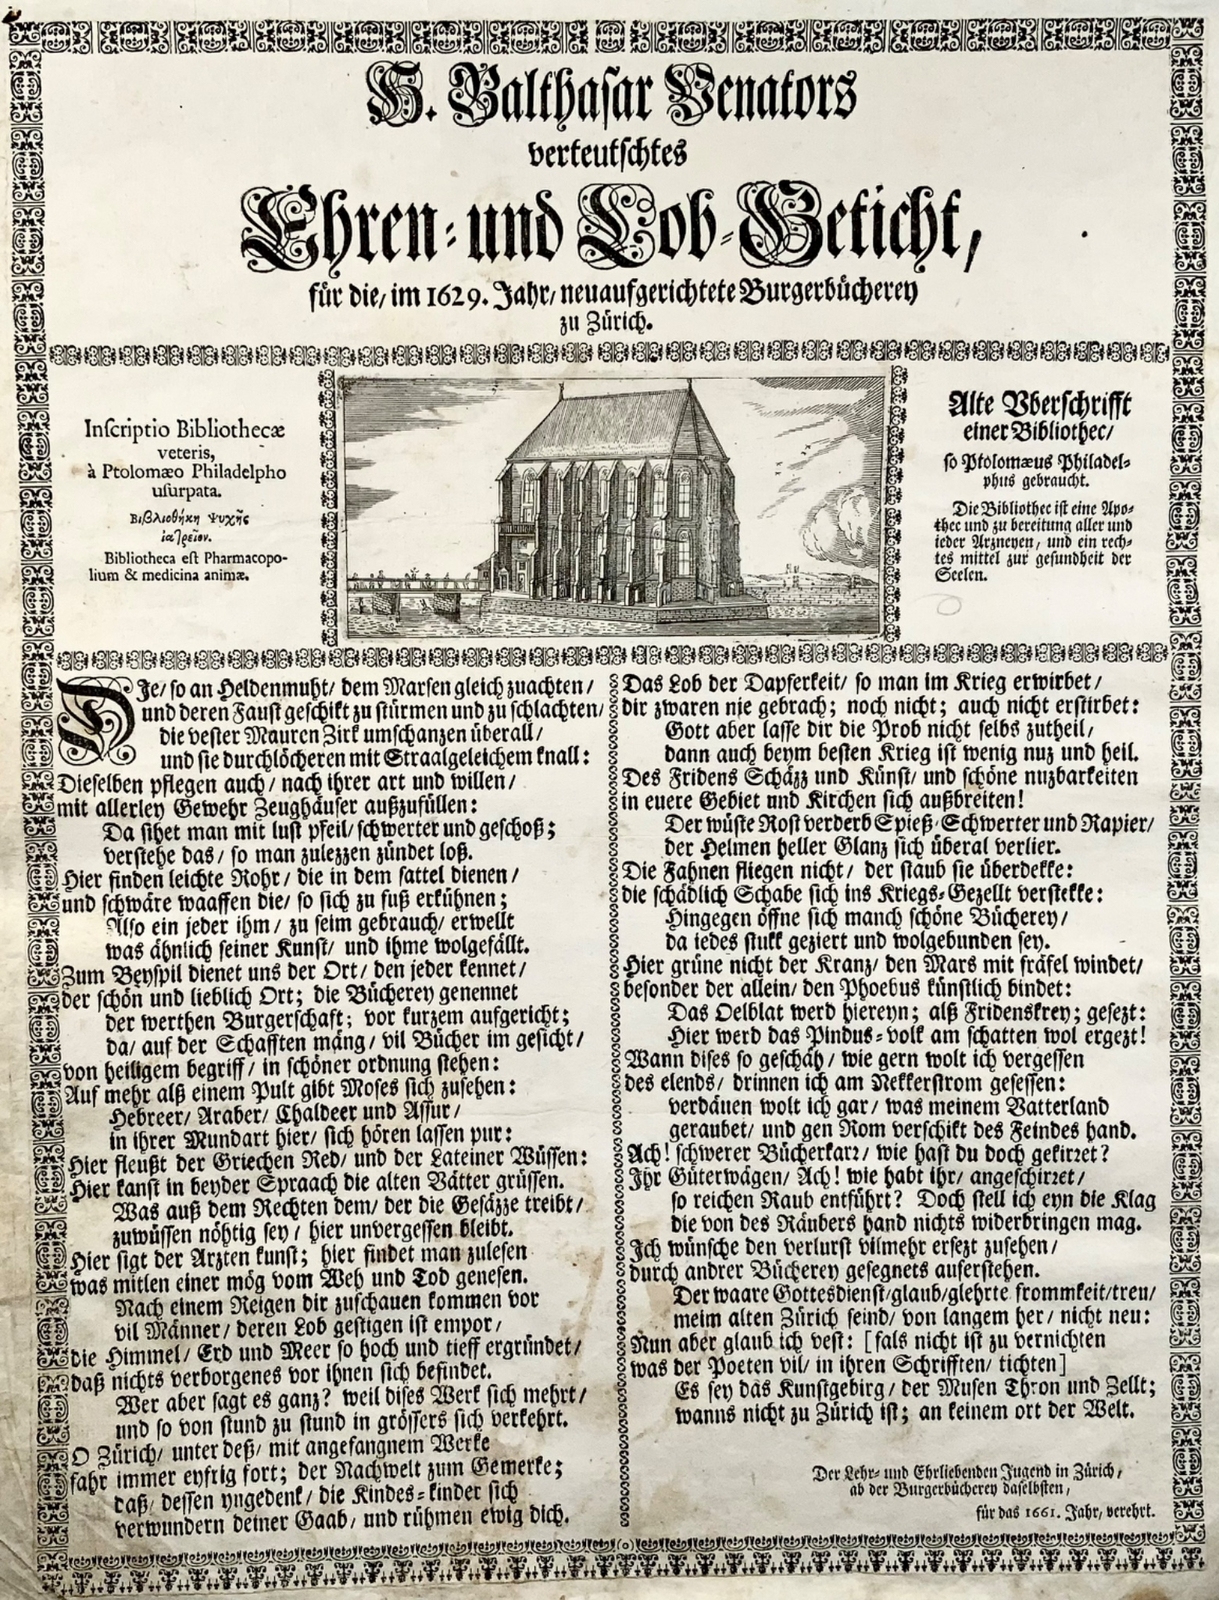 H. Balthasar Venators
verteutschtes
Ehren- und Lob-Geticht,
für die/ im 1629. Jahr/ neuaufgerichtete Burgerbücherey
zu Zürich.
Inscriptio Bibliothecæ
veteris,
à Ptolomæo Philadelpho
usurpata.
Βιβλιοθήκη Ψυχῆς
ἰατρεῖον.
Bibliotheca est Pharmacopo-
lium & medicina animæ.
Alte Vberschrifft
einer Bibliothec/
so Ptolomæus Philadel-
phus gebraucht.
Die Bibliothec ist eine Apo-
thec und zu bereitung aller und
ieder Arzneyen/ und ein rech-
tes mittel zur gesundheit der
Seelen.
DJe/ so an Heldenmuht/ dem Marsen gleich zuachten/
und deren Faust geschikt zu stürmen und zu schlachten/
die vester Mauren Zirk umschanzen überall/
und sie durchlöcheren mit Straalgeleichem knall:
Dieselben pflegen auch/ nach ihrer art und willen/
mit allerley Gewehr Zeughäuser außzufüllen:
Da sihet man mit lust pfeil/ schwerter und geschoß;
verstehe das/ so man zulezzen zündet loß.
Hier finden leichte Rohr/ die in dem sattel dienen/
und schwäre waaffen die/ so sich zu fuß erkühnen;
Also ein jeder ihm/ zu seim gebrauch/ erwellt
was ähnlich seiner Kunst/ und ihme wolgefällt.
Zum Beyspil dienet uns der Ort/ den jeder kennet/
der schön und lieblich Ort; die Bücherey genennet
der werthen Burgerschaft; vor kurzem aufgericht;
da/ auf der Schafften mäng/ vil Bücher im gesicht/
von heiligem begriff/ in schöner ordnung stehen:
Auf mehr alß einem Pult gibt Moses sich zusehen:
Hebreer/ Araber/ Chaldeer und Assur/
in ihrer Mundart hier/ sich hören lassen pur:
Hier fleußt der Griechen Red/ und der Lateiner Wüssen:
Hier kanst in beyder Spraach die alten Vätter grüssen.
Was auß dem Rechten dem/ der die Gesäzze treibt/
zuwüssen nöhtig sey/ hier unvergessen bleibt.
Hier sigt der Arzten kunst; hier findet man zulesen
was mitlen einer mög vom Weh und Tod genesen.
Nach einem Reigen dir zuschauen kommen vor
vil Männer/ deren Lob gestigen ist empor/
die Himmel/ Erd und Meer so hoch und tieff ergründet/
daß nichts verborgenes vor ihnen sich befindet.
Wer aber sagt es ganz? weil dises Werk sich mehrt/
und so von stund zu stund in grössers sich verkehrt.
O Zürich/ unter deß/ mit angefangnem Werke
fahr immer eyfrig fort; der Nachwelt zum Gemerke;
daß/ dessen yngedenk/ die Kindes-kinder sich
verwundern deiner Gaab/ und rühmen ewig dich.
Das Lob der Dapferkeit/ so man im Krieg erwirbet/
dir zwaren nje gebrach; noch nicht; auch nicht erstirbet:
Gott aber lasse dir die Prob nicht selbs zutheil/
dann auch beym besten Krieg ist wenig nuz und heil.
Des Fridens Schäzz und Künst/ und schöne nuzbarkeiten
in euere Gebiet und Kirchen sich außbreiten!
Der wüste Rost verderb Spieß/ Schwerter und Rapier/
der Helmen heller Glanz sich überal verlier.
Die Fahnen fliegen nicht/ der staub sie überdekke:
die schädlich Schabe sich ins Kriegs-Gezellt verstekke:
Hingegen öffne sich manch schöne Bücherey/
da iedes stukk geziert und wolgebunden sey.
Hier grüne nicht der Kranz/ den Mars mit fräfel windet/
besonder der allein/ den Phoebus künstlich bindet:
Das Oelblat werd hiereyn; alß Fridenskrey; gesezt:
Hier werd das Pindus-volk am schatten wol ergezt!
Wann dises so geschäh/ wie gern wolt ich vergessen
des elends/ drinnen ich am Nekkerstrom gesessen:
verdäuen wolt ich gar/ was meinem Vatterland
geraubet/ und gen Rom verschikt des Feindes hand.
Ach! schwerer Bücherkarz/ wie hast du doch gekirzet?
Ihr Güterwägen/ Ach! wie habt ihr/ angeschirzet/
so reichen Raub entführt? Doch stell ich eyn die Klag
die von des Räubers hand nichts widerbringen mag.
Ich wünsche den verlurst vilmehr ersezt zusehen/
durch andrer Bücherey gesegnets auferstehen.
Der waare Gottesdienst/glaub/glehrte frommkeit/treu/
meim alten Zürich seind/ von langem her/ nicht neu:
Nun aber glaub ich vest: [fals nicht ist zu vernichten
was der Poeten vil/ in ihren Schrifften/ tichten]
Es sey das Kunstgebirg/ der Musen Thron und Zellt;
wanns nicht zu Zürich ist; an keinem ort der Welt.
Der Lehr- und Ehrliebenden Jugend in Zürich/
ab der Burgerbücherey daselbsten/
für das 1661. Jahr/ verehrt.